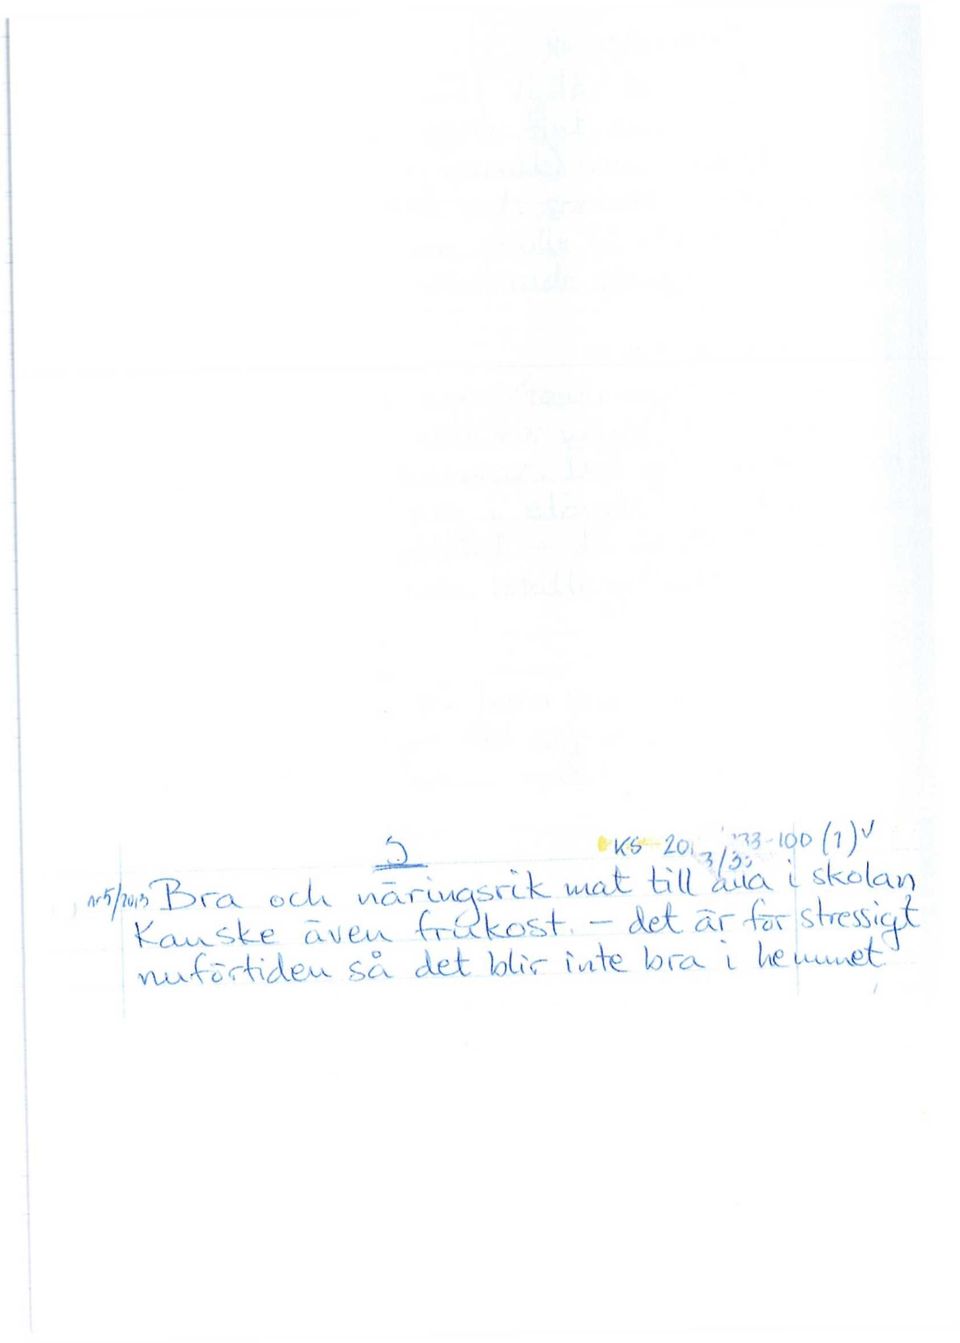 5
KS 201 3/33-100 (1) √
nr 5/2013 Bra och näringsrik mat till alla i skolan
Kanske även frukost. – det är för stressigt
nuförtiden så det blir inte bra i hemmet